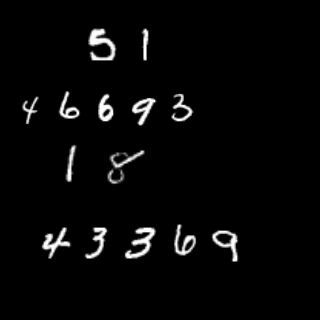 51
46693
18
43369